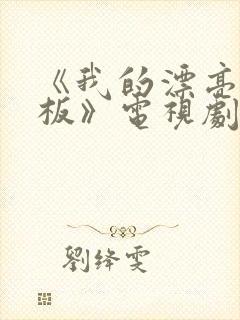 《我的漂亮
板》電視劇
劉絳雯